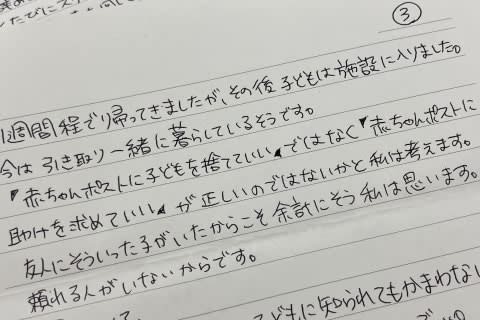 ③
1週間程で帰ってきましたが、その後子どもは施設に入りました。
今は引き取り一緒に暮らしているそうです。
『赤ちゃんポストに子どもを捨てていい』ではなく『赤ちゃんポストに
助けを求めていい』が正しいのではないかと私は考えます。
友人にそういった子がいたからこそ余計にそう私は思います。
頼れる人がいないからです。
子どもに知られてもかまわない